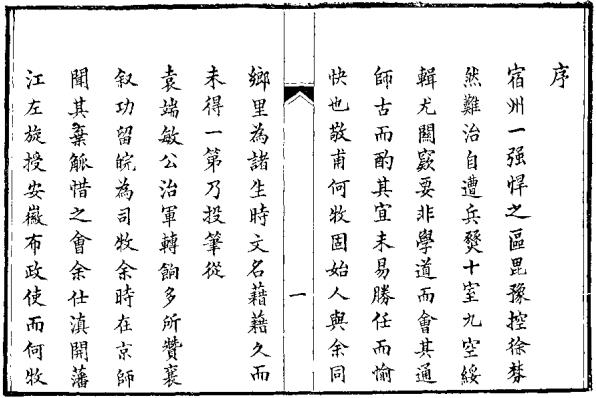 序
宿州一强悍之區毘豫控徐棼
然難治自遭兵燹十室九空綏
輯尤關窾要非學道而會其通
師古而酌其宜未易勝任而愉
快也敬甫何牧固始人與余同
一
鄉里為諸生時文名藉藉久而
未得一第乃投筆從
袁端敏公治軍轉餉多所贊襄
叙功留皖為司牧余時在京師
聞其棄觚惜之會余仕滇開藩
江左旋授安徽布政使而何牧